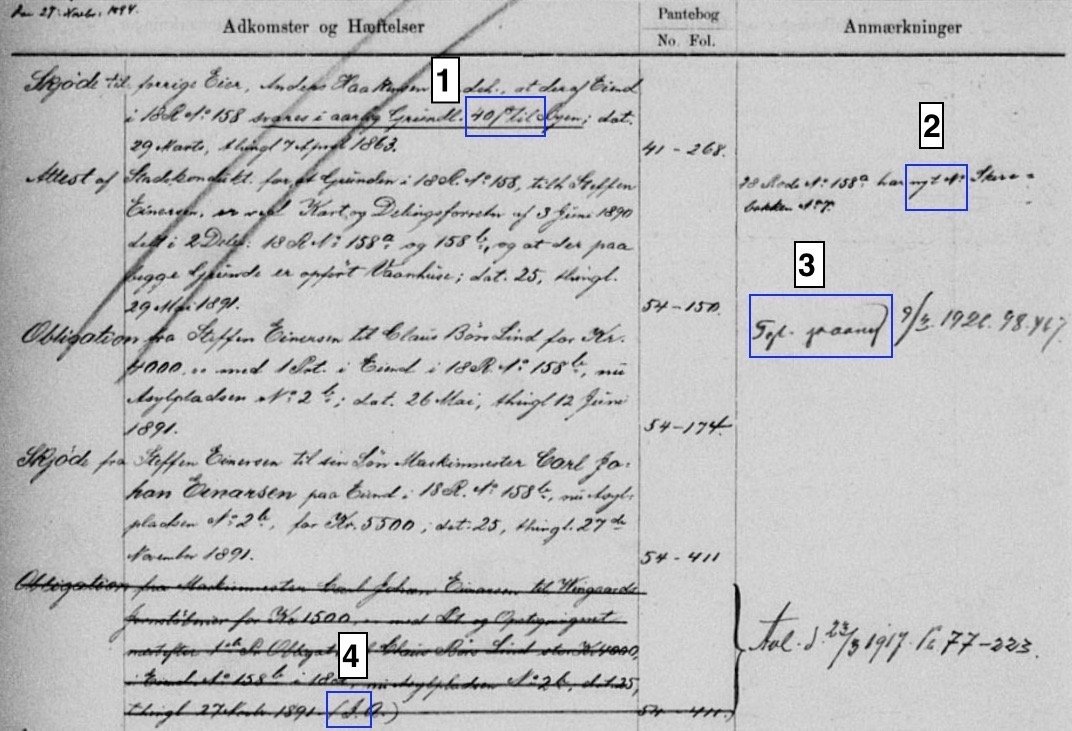 den 27 Novbr. 1894.
Adkomster og Hæftelser
Pantebog
No. Fol.
Anmærkninger
1
Skjøde til forrige Eier, Anders Haakensen deh., at der af Eiend
i 18 R. No 158 svares i aarlig Grundl. 40 til Byen; dat.
29 Marts, thingl 7 April 1863.
41 - 268.
2
Attest af Stadskondukt. for, at Grunden i 18 R. No 158, tilh. Steffen
Einersen, er ved Kart og Delingsforretn af 3 Juni 1890
delt i 2 Dele: 18 R No 158a og 158b, og at der paa
begge Grunde er opført Vaanhuse; dat. 25, thingl.
29 Mai 1891.
54 - 150.
18 Rode No 158a har nyt No
bakken No 7.
3
Obligation fra Steffen Einersen til Claus Børs Lind for Kr.
4000, med 1 Prt. i Eiend i 18 R. No 158b, nu
Asylpladsen No 2b; dat. 26 Mai, thingl 12 Juni
1891.
54 - 174.
Skjøde fra Steffen Einersen til sin Søn Maskinmester Carl Jo-
han Einarsen paa Eiend i 18 R. No 158b, nu Asyl-
pladsen No 2b, for Kr. 5500; dat. 25, thingl. 27de
November 1891.
54 - 411
Obligation fra Maskinmester Carl Johan Einarsen til Wingaards
Jernstøberi for Kr 1500, med Prt og Opstigningsret
næstefter 1ste Pr Obligat Claus Børs Lind stor Kr 4000,
i Eiend. No 158b i 18 R, nu Asylpladsen No 2b, dat. 25,
thingl 27 Novbr 1891. (I. A.)
54 - 411.
4
Avl. d. 23/3 1917. 77 - 223.